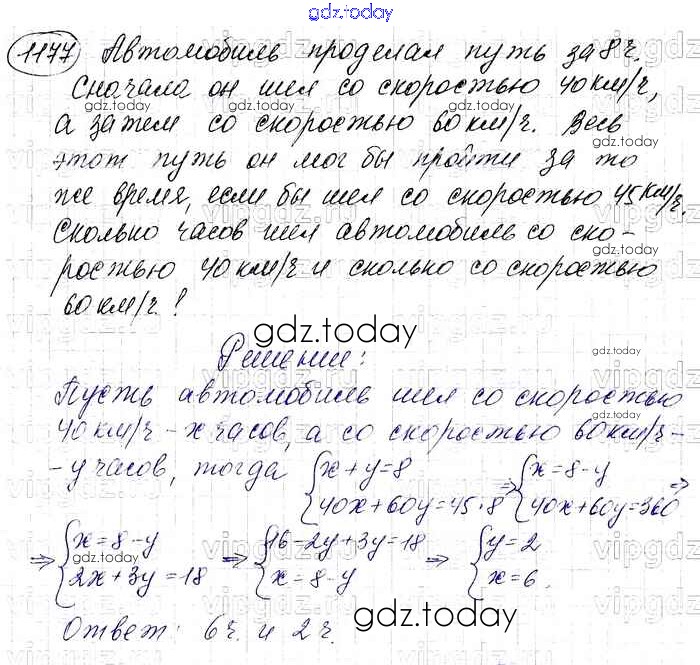 gdz.today
1177 Автомобиль проделал путь за 8 ч.
Сначала он шел со скоростью 40 км/ч,
а затем со скоростью 60 км/ч. Весь
этот путь он мог бы пройти за то
же время, если бы шел со скоростью 45 км/ч.
Сколько часов шел автомобиль со ско-
ростью 40 км/ч и сколько со скоростью
60 км/ч?
gdz.today
Решение:
Пусть автомобиль шел со скоростью
40 км/ч - x часов, а со скоростью 60 км/ч -
- y часов, тогда { x + y = 8 ; 40x + 60y = 45·8 ⇒ { x = 8 - y ; 40x + 60y = 360 ⇒
⇒ { x = 8 - y ; 2x + 3y = 18 ⇒ { 16 - 2y + 3y = 18 ; x = 8 - y ⇒ { y = 2 ; x = 6.
Ответ: 6 ч. и 2 ч.
gdz.today